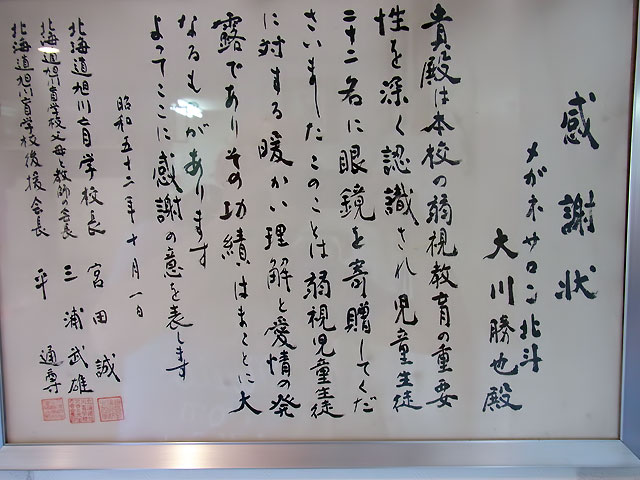 感謝状
メガネサロン北斗
大川勝也殿
貴殿は本校の弱視教育の重要
性を深く認識され児童生徒
二十二名に眼鏡を寄贈してくだ
さいましたこのことは弱視児童生徒
に対する暖かい理解と愛情の発
露でありその功績はまことに大
なるものがあります
よってここに感謝の意を表します
昭和五十二年十月一日
北海道旭川盲学校長 宮田誠
北海道旭川盲学校父母と教師の会長 三浦武雄
北海道旭川盲学校後援会長 平通尊